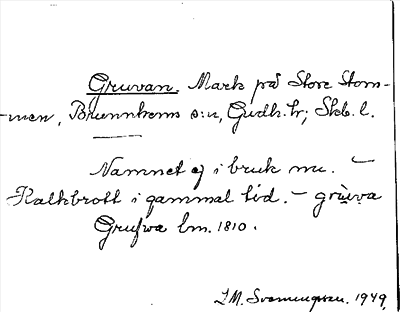 Gruvan. Mark på Store Stom-
-men, Brunnhems s:n, Gudh. hr; Skb. l.
Namnet ej i bruk nu.
Kalkbrott i gammal tid. - grùva
Grufwa lm. 1810.
L.M. Svenungsson. 1949.